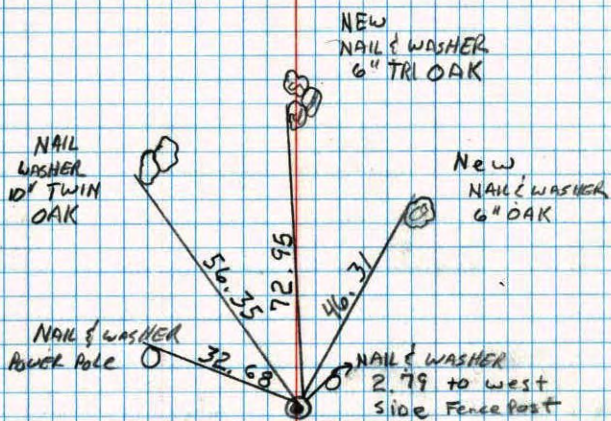 NEW
NAIL & WASHER
6" TRI OAK
NAIL
WASHER
10" TWIN
OAK
New
NAIL & WASHER
6" OAK
56.35
72.95
46.31
NAIL & WASHER
POWER POLE
32.68
NAIL & WASHER
2.79 to west
Side Fence Post